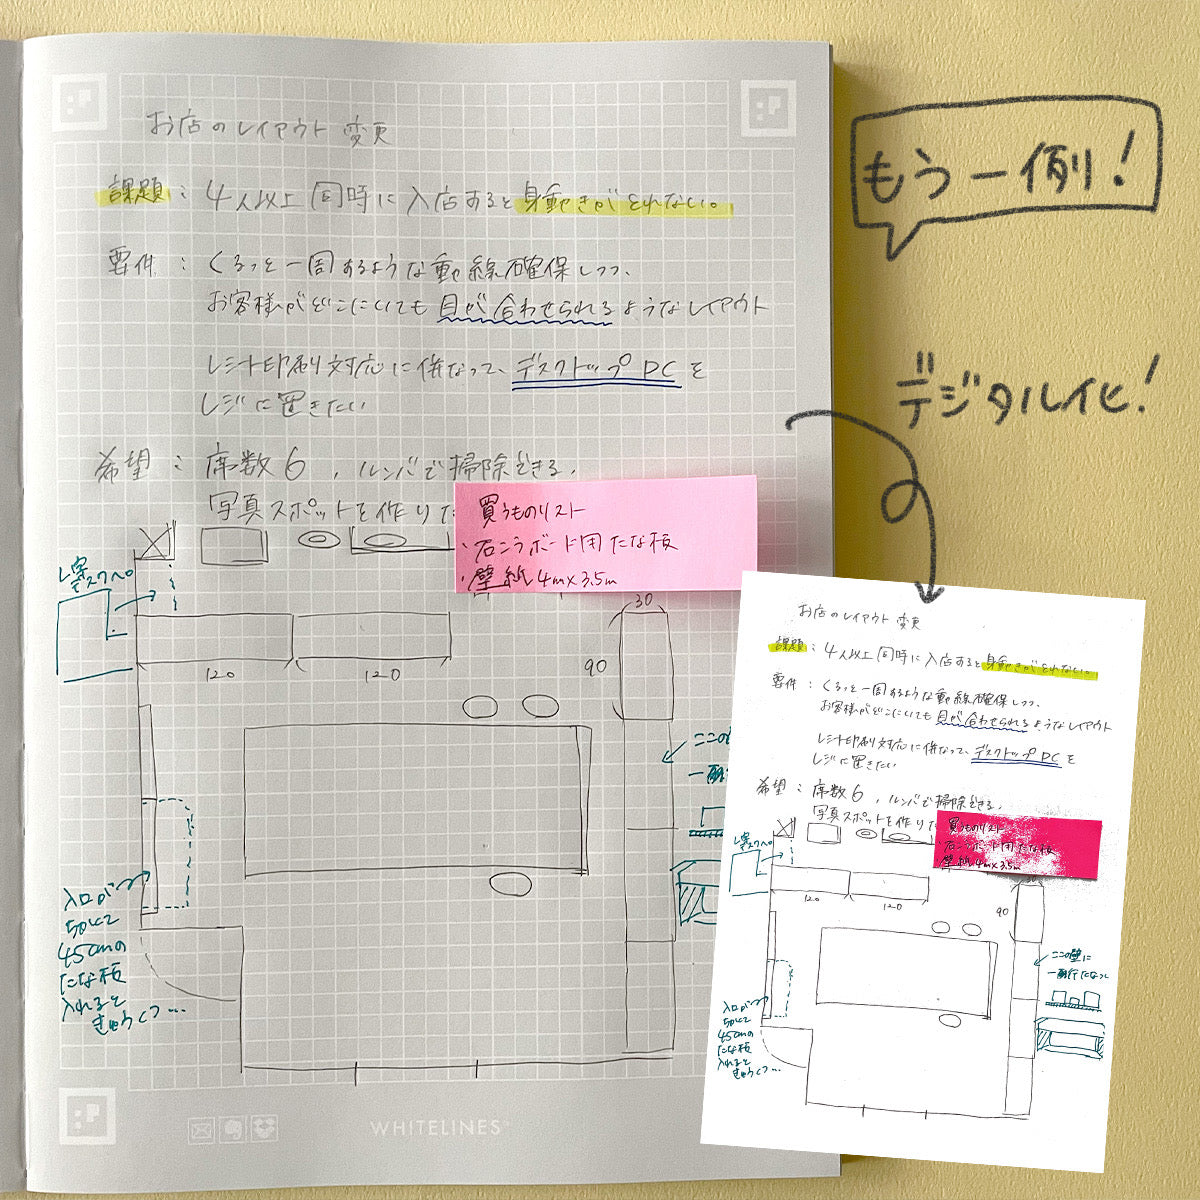 お店のレイアウト 変更
課題：4人以上 同時に入店すると身動きがとれない。
要件：くるっと一周するような動線確保しつつ、
お客様がどこにいても目が合わせられるようなレイアウト
レシート印刷対応に併なって、デスクトップPCを
レジに置きたい
希望：席数6、ルンバで掃除できる、
写真スポットを作りた
買うものリスト
・石こうボード用たな板
・壁紙4m×3.5m
L字
デスクへ。
120
120
30
90
ここの
一面
入口が
45cmの
たな板
入れると
きゅうくつ…
WHITELINES
もう一例！
デジタル化！
お店のレイアウト 変更
課題：4人以上 同時に入店すると身動きがとれない。
要件：くるっと一周するような動線確保しつつ、
お客様がどこにいても目が合わせられるようなレイアウト
レシート印刷対応に併なって、デスクトップPCを
レジに置きたい
希望：席数6、ルンバで掃除できる、
写真スポットを作りた
買うものリスト
石こうボード用たな板
壁紙4m×3.5m
L字
デスクへ。
120
120
30
90
ここの壁に
入口が
45cmの
たな板
入れると
きゅうくつ…